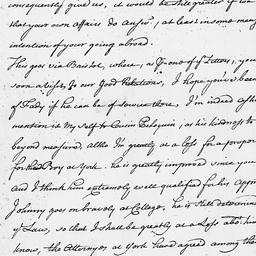 consequently give us, it would be still greater if
that your own affairs do answ, at least in some mea
intention of your going abroad.
This goes via Bristol, where, as of one of Letters, you
soon arise, to our Good Relations, I hope you've been
of Fady if he can be of service there, I'm indeed asha
mention it My Self to Cousin as his kindness to
beyond measure, altho I'm greatly at a Loss for a prope
for Boy at York. he is greatly improved since you
and I think him extremely well qualified for his appo
Johnny goes on bravely at College, he is Still determine
of Law, so that I shall be greatly at a Loss abo. him
know, the Attorneys at York have agreed among the